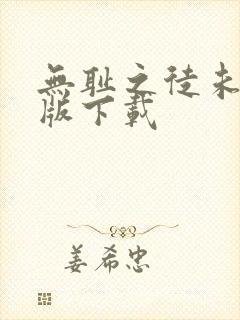 無耻之徒未
版下載
姜希忠